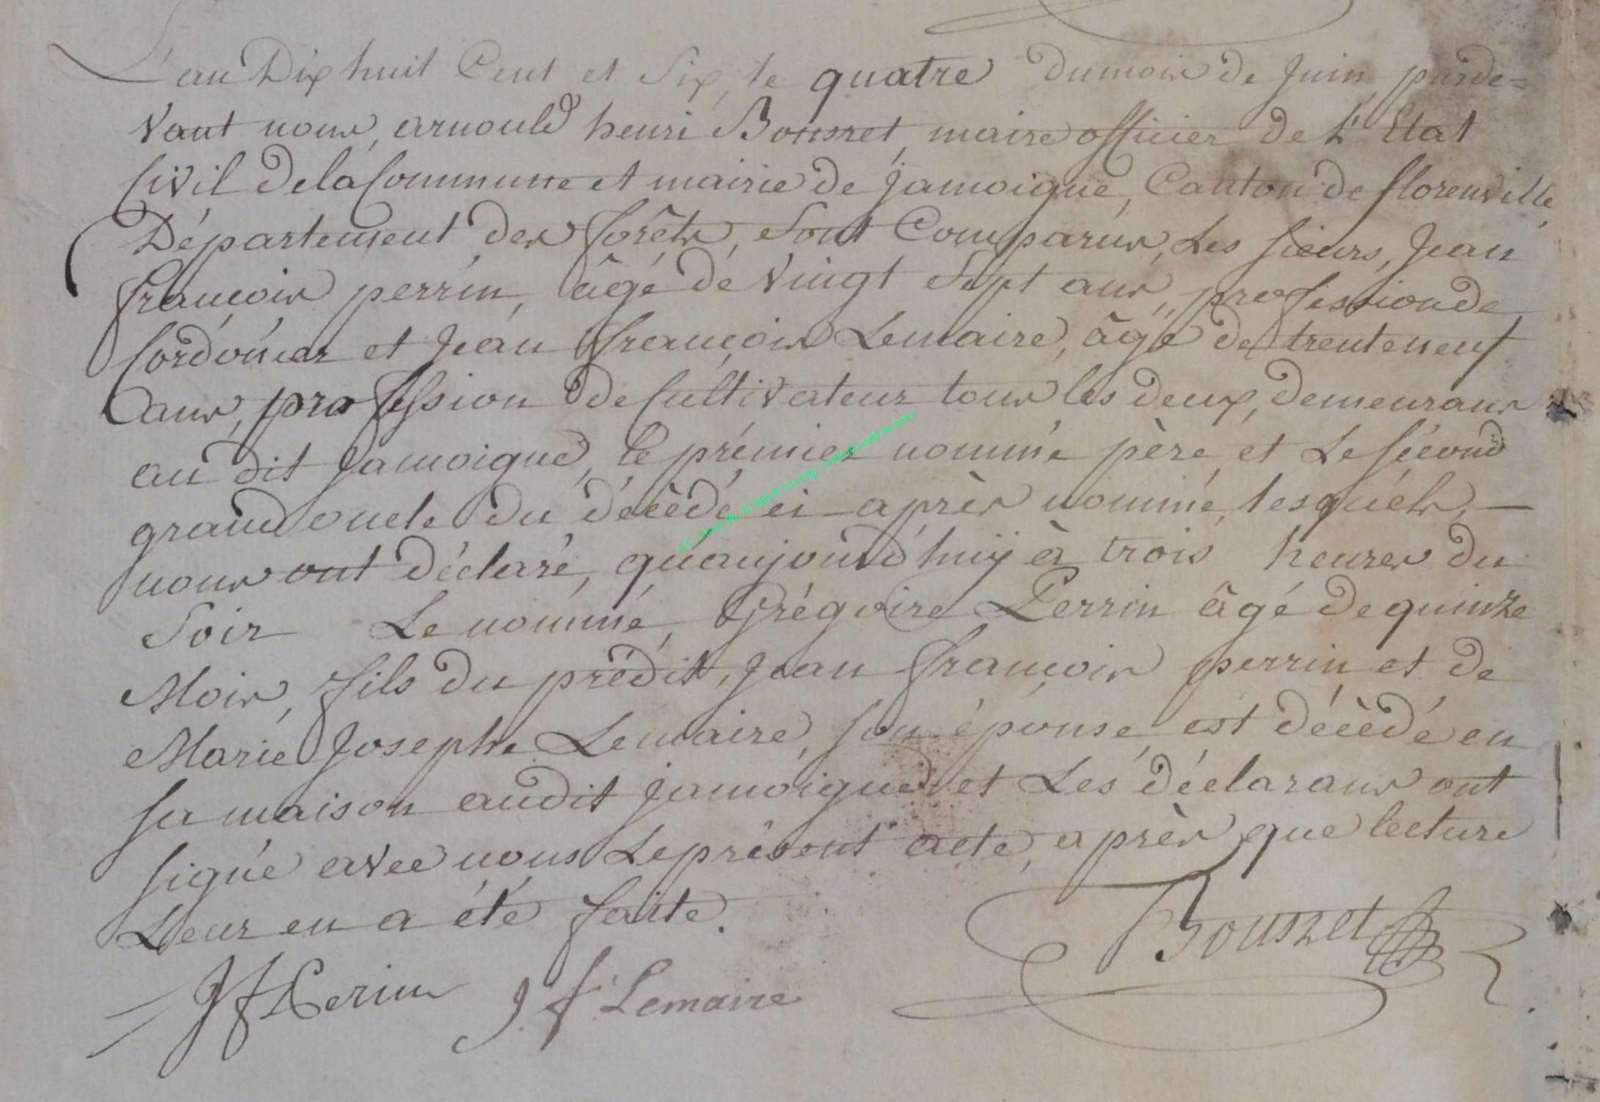 L'an Dix huit Cent et Six, le quatre du mois de Juin, parde=
vant nous, arnould henri Bousret, maire officier de L'Etat
Civil de la Commune et mairie de jamoigne, Canton de florenville,
Département des forêts, Sont Comparus, Les sieurs, Jean
françois perrin, âgé de vingt Sept ans, profession de
Cordonier et Jean françois Lemaire, âgé de trente neuf
ans, profession de Cultivateur tous les deux, demeurans
au dit Jamoigne, le prémier nommé père et Le Sécond
grand oncle du décèdé ci-après nommé, lesquéls, —
nous ont déclaré, qu'aujourd'huij à trois heures du
Soir Le nommé, Grégoire Perrin âgé de quinze
Mois, fils du prédit, Jean françois perrin et de
Marie Josephe Lemaire, son épouse, est décèdé en
sa maison audit jamoigne et Les déclarans ont
signé avec nous Le présent acte, après que lecture
Leur en a été faite.
Bousret
J f Perin J. f Lemaire